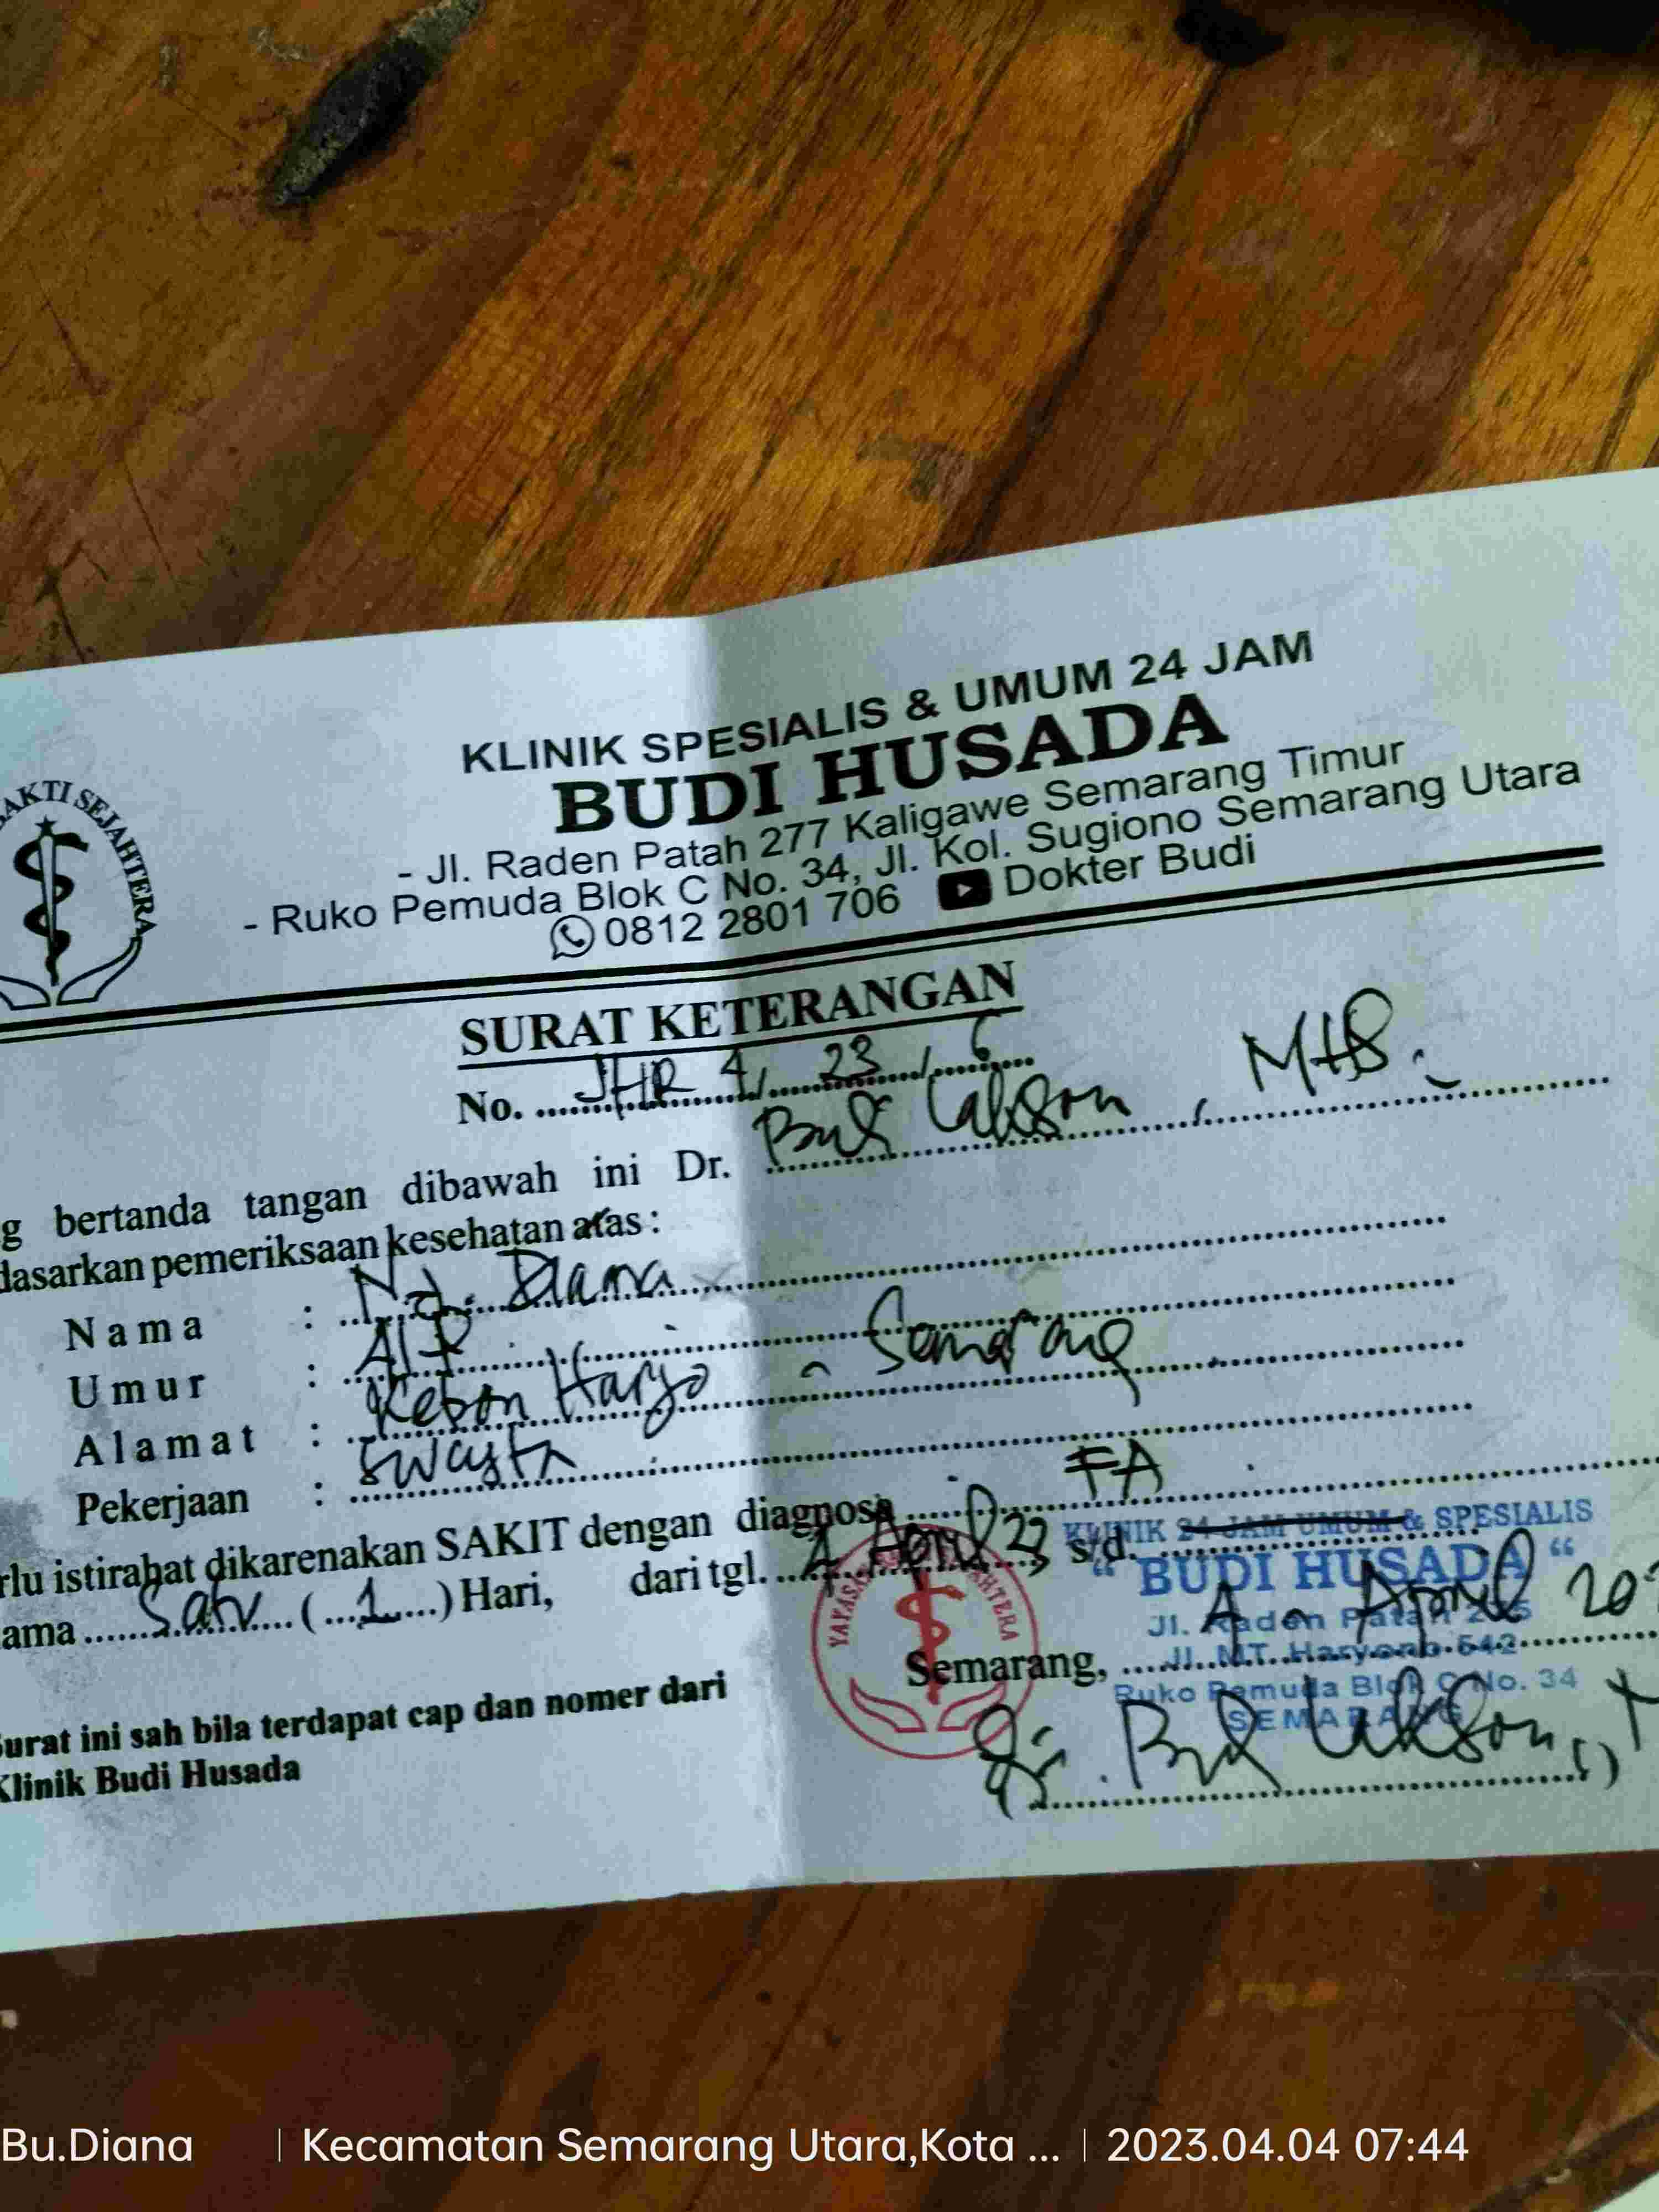 KLINIK SPESIALIS & UMUM 24 JAM
BUDI HUSADA
- Jl. Raden Patah 277 Kaligawe Semarang Timur
- Ruko Pemuda Blok C No. 34, Jl. Kol. Sugiono Semarang Utara
0812 2801 706 Dokter Budi
AKTI SEJAHTERA
SURAT KETERANGAN
No. JHR 4/ 23 / 6
g bertanda tangan dibawah ini Dr. Budi Laksono, MHS.
dasarkan pemeriksaan kesehatan atas :
Nama : Diana
Umur :
Alamat : Kebon Harjo - Semarang
Pekerjaan : Swasta
rlu istirahat dikarenakan SAKIT dengan diagnosa FA
ama Satu ( 1 ) Hari, dari tgl. 4 April 23 s/d.
KLINIK 24 JAM UMUM & SPESIALIS
" BUDI HUSADA "
Jl. Raden Patah
Jl. MT. Haryono 542
Ruko Pemuda Blok C No. 34
SEMARANG
YAYASAN
HTERA
Semarang, 4 - April 20
dr. Budi Laksono,
Surat ini sah bila terdapat cap dan nomer dari
Klinik Budi Husada
Bu.Diana | Kecamatan Semarang Utara,Kota ... | 2023.04.04 07:44